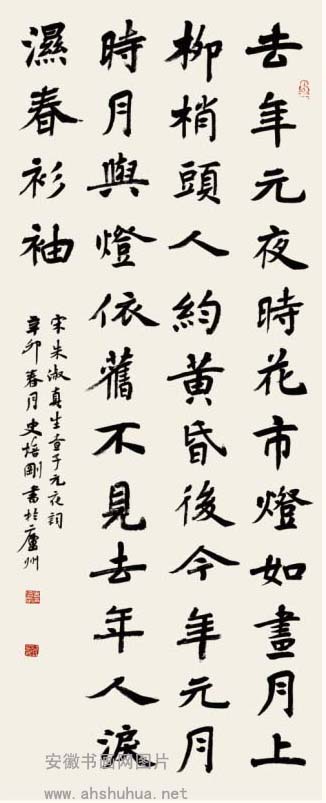 去年元夜時花市燈如晝月上
柳梢頭人約黄昏後今年元月
時月與燈依舊不見去年人淚
濕春衫袖
宋朱淑真生查子元夜詞
辛卯春月史培剛書於廬州
安徽书画网图片
www.ahshuhua.net